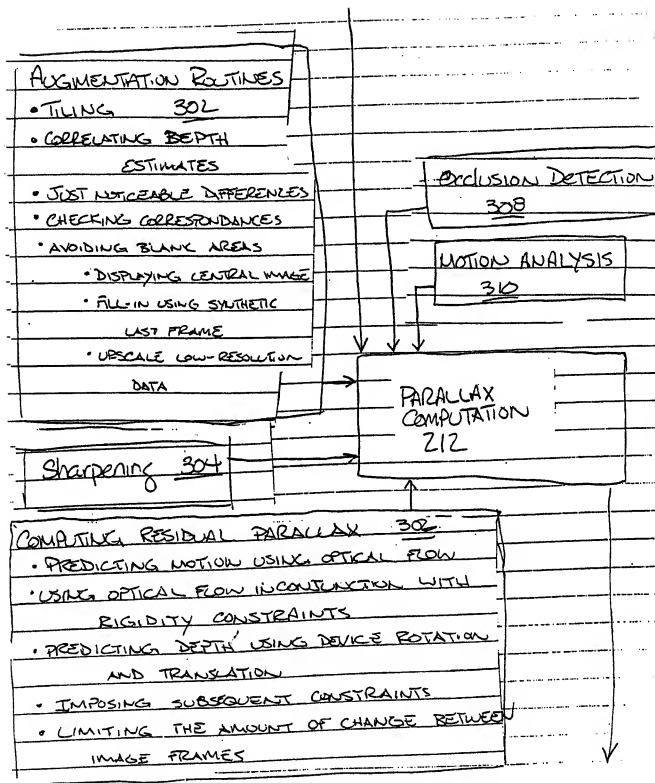 AUGMENTATION ROUTINES
• TILING 302
• CORRELATING DEPTH
ESTIMATES
• JUST NOTICEABLE DIFFERENCES
• CHECKING CORRESPONDANCES
• AVOIDING BLANK AREAS
• DISPLAYING CENTRAL IMAGE
• FILL-IN USING SYNTHETIC
LAST FRAME
• UPSCALE LOW-RESOLUTION
DATA
OCCLUSION DETECTION
308
MOTION ANALYSIS
310
PARALLAX
COMPUTATION
212
Sharpening 304
COMPUTING RESIDUAL PARALLAX 306
• PREDICTING MOTION USING OPTICAL FLOW
• USING OPTICAL FLOW IN CONJUNCTION WITH
RIGIDITY CONSTRAINTS
• PREDICTING DEPTH USING DEVICE ROTATION
AND TRANSLATION
• IMPOSING SUBSEQUENT CONSTRAINTS
• LIMITING THE AMOUNT OF CHANGE BETWEEN
IMAGE FRAMES